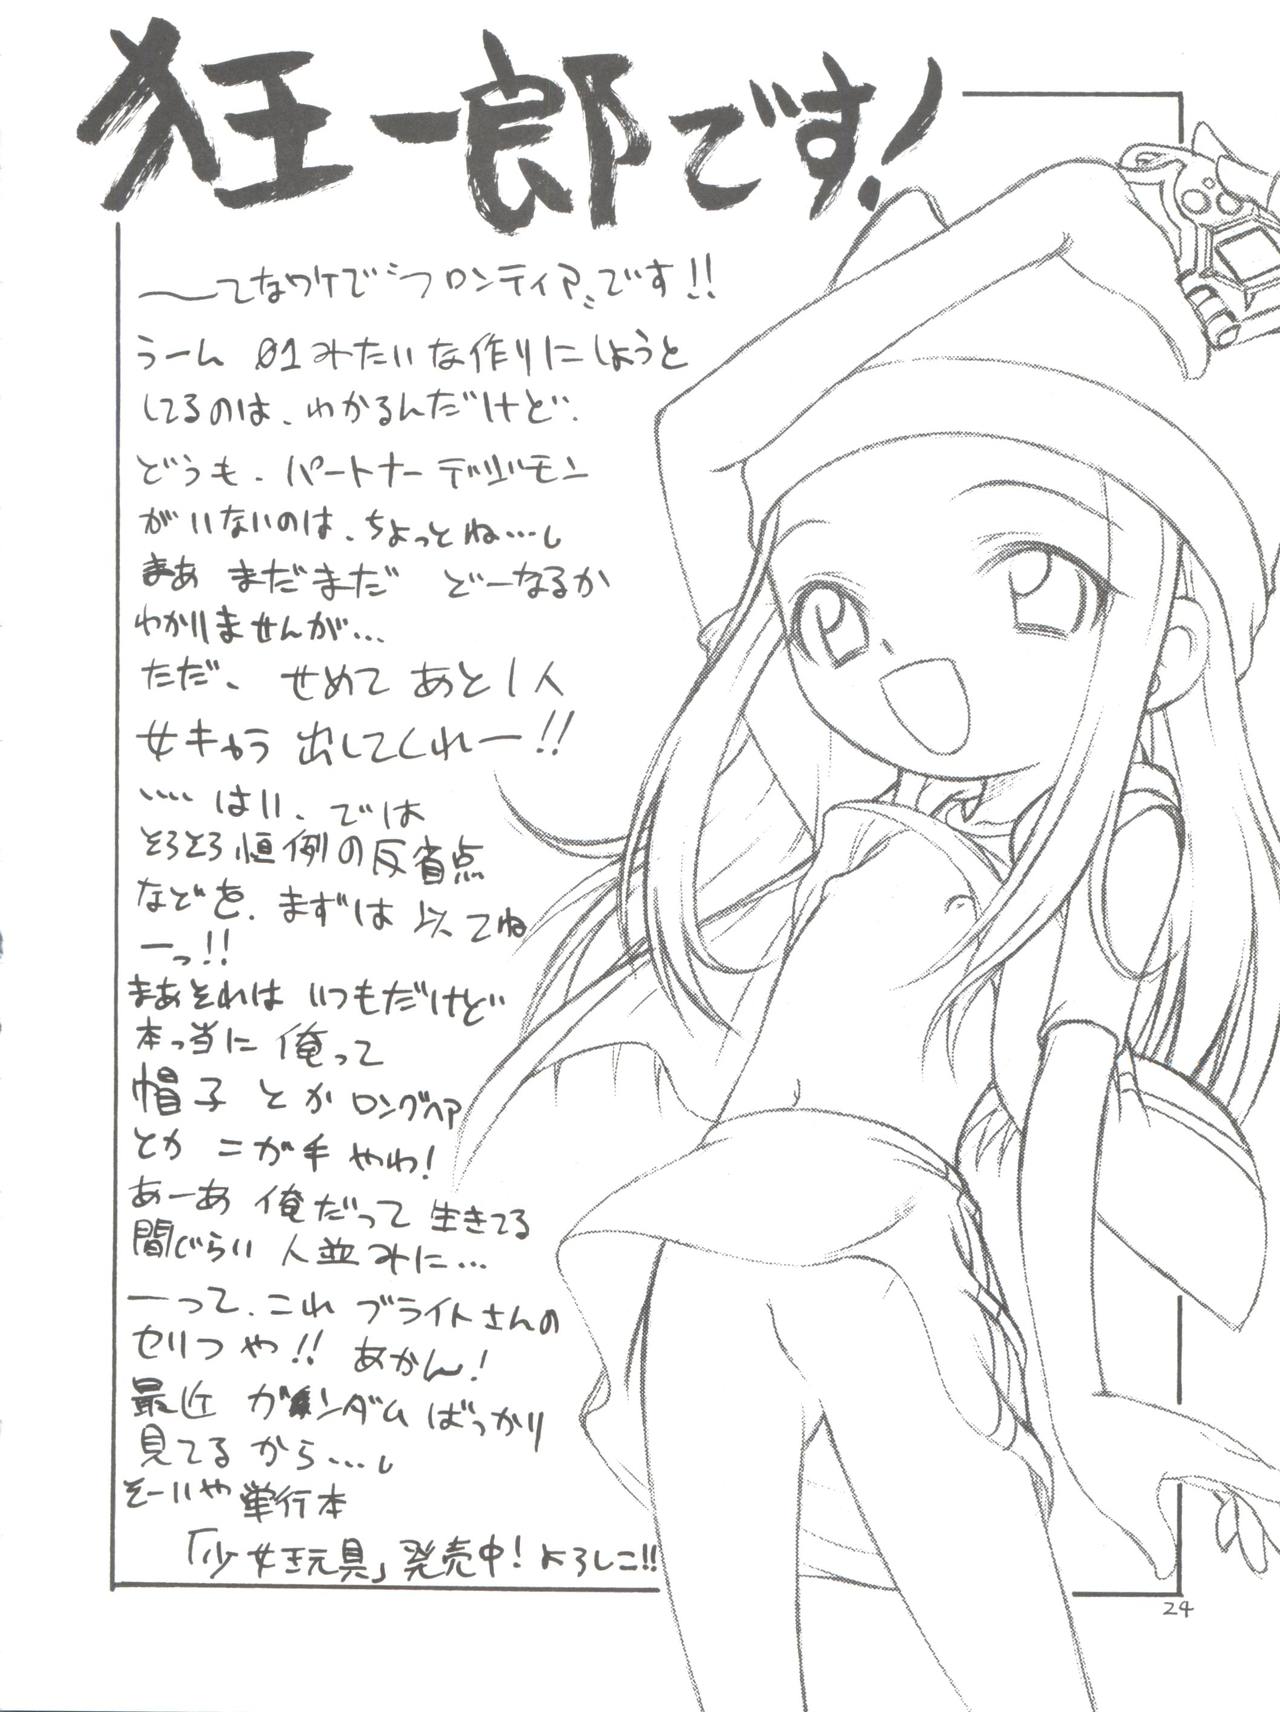 狂一郎です！
〜てなワケで“フロンティア”です!!
うーん 01みたいな作りにしようと
してるのは、わかるんだけど、
どうも、パートナーデジモン
がいないのは、ちょっとね…し
まあ まだまだ どーなるか
わかりませんが…
ただ、せめてあと1人
女キャラ出してくれー!!
…はい、では
そろそろ恒例の反省点
などを、まずは似てね
ーっ!!
まあそれは いつもだけど
本っ当に俺って
帽子とかロングヘア
とか こが手やわ！
あーあ 俺だって生きてる
間じらい人並みに…
ーって、これ ブライトさんの
セリフや!! あかん！
最近 ガンダムばっかり
見てるから…し
そーいや単行本
「少女玩具」発売中！よろしこ!!
24